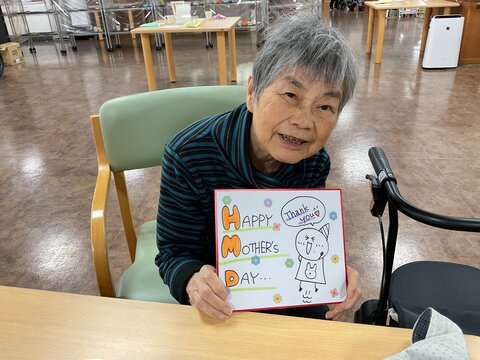 HAPPY
MOTHER'S
DAY...
Thank
you